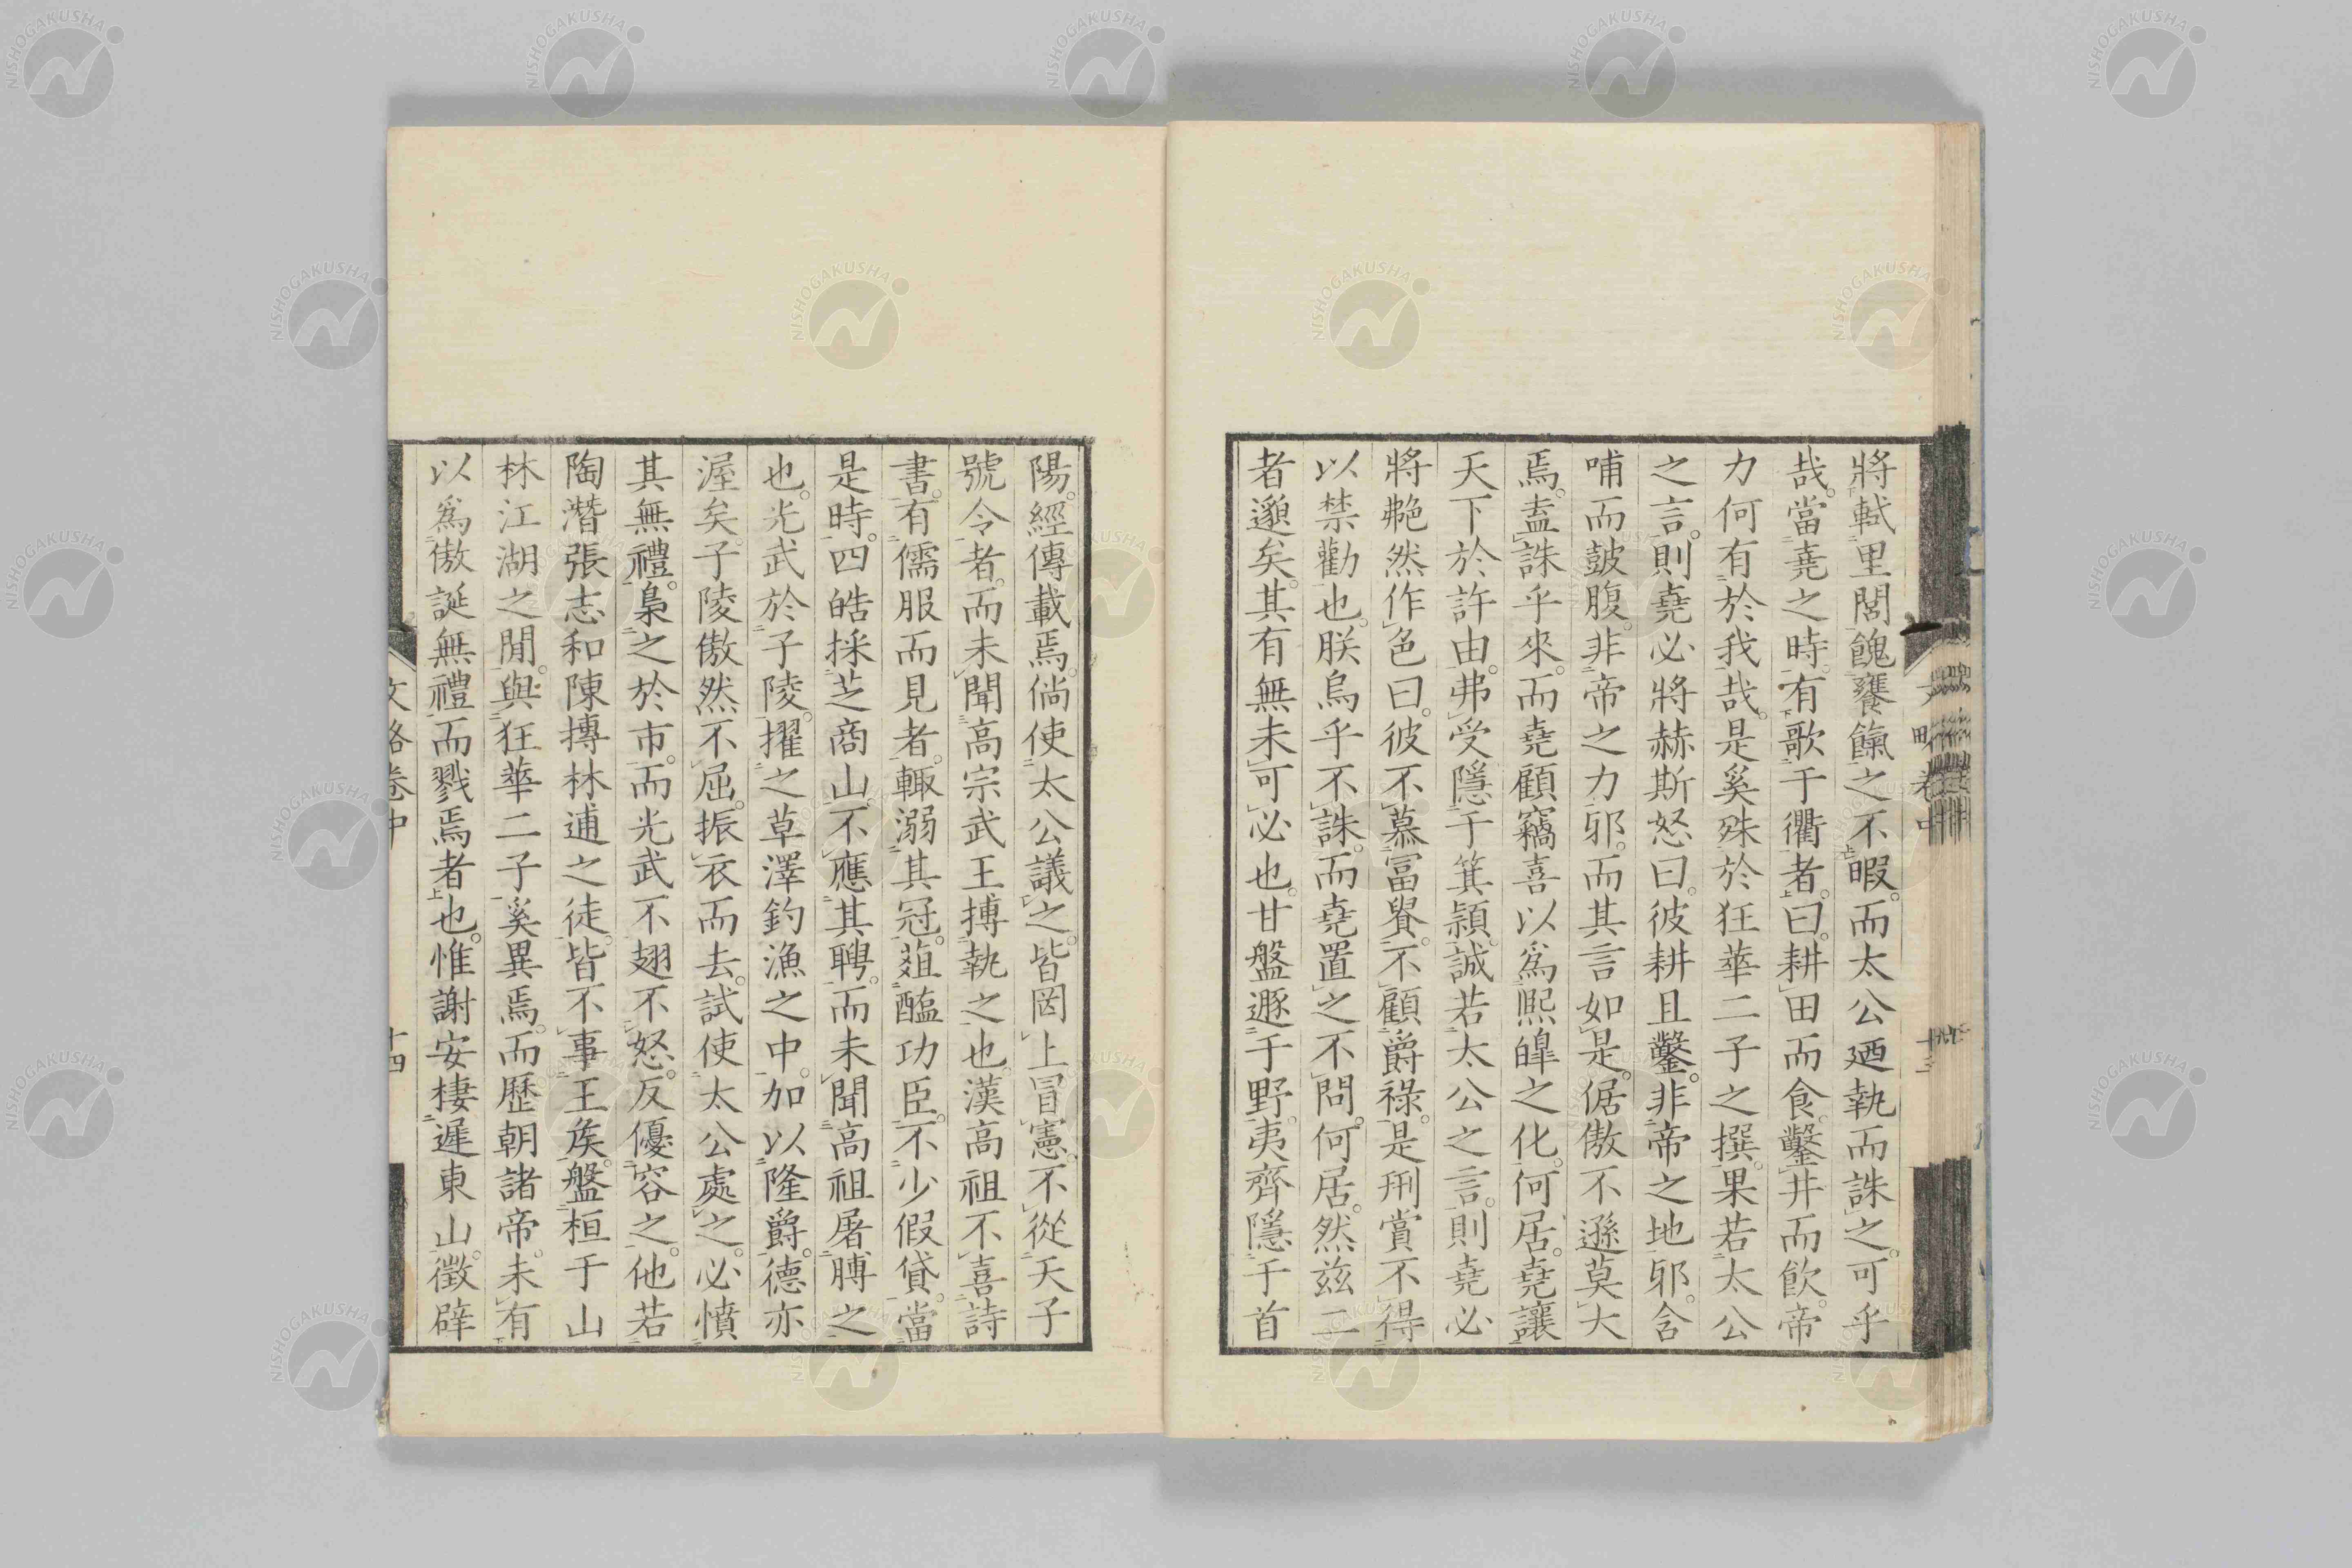 將軾里閭餽饔餼之不暇。而太公迺執而誅之。可乎
哉。當堯之時。有歌于衢者。曰。耕田而食。鑿井而飮。帝
力何有於我哉。是奚殊於狂華二子之撰。果若太公
之言。則堯必將赫斯怒曰。彼耕且鑿。非帝之地邪。含
哺而皷腹。非帝之力邪。而其言如是。倨傲不遜莫大
焉。盍誅乎來。而堯顧竊喜以爲熈皥之化。何居。堯讓
天下於許由。弗受隱于箕潁。誠若太公之言。則堯必
將艴然作色曰。彼不慕富貴。不顧爵祿。是刑賞不得
以禁勸也。朕烏乎不誅。而堯置之不問。何居。然茲二
者邈矣。其有無未可必也。甘盤遯于野。夷齊隱于首
陽。經傳載焉。倘使太公議之。皆罔上冒憲。不從天子
號令者。而未聞高宗武王摶執之也。漢高祖不喜詩
書。有儒服而見者。輙溺其冠。葅醢功臣。不少假貸。當
是時。四皓採芝商山。不應其聘。而未聞高祖屠膊之
也。光武於子陵。擢之草澤釣漁之中。加以隆爵。德亦
渥矣。子陵傲然不屈。振衣而去。試使太公處之。必憤
其無禮。梟之於市。而光武不翅不怒。反優容之。他若
陶潛張志和陳摶林逋之徒。皆不事王矦。盤桓于山
林江湖之閒。與狂華二子奚異焉。而歷朝諸帝。未有
以爲傲誕無禮而戮焉者也。惟謝安棲遲東山。徵辟
文略卷中
十四
卷中
十三
NISHOGAKUSHA